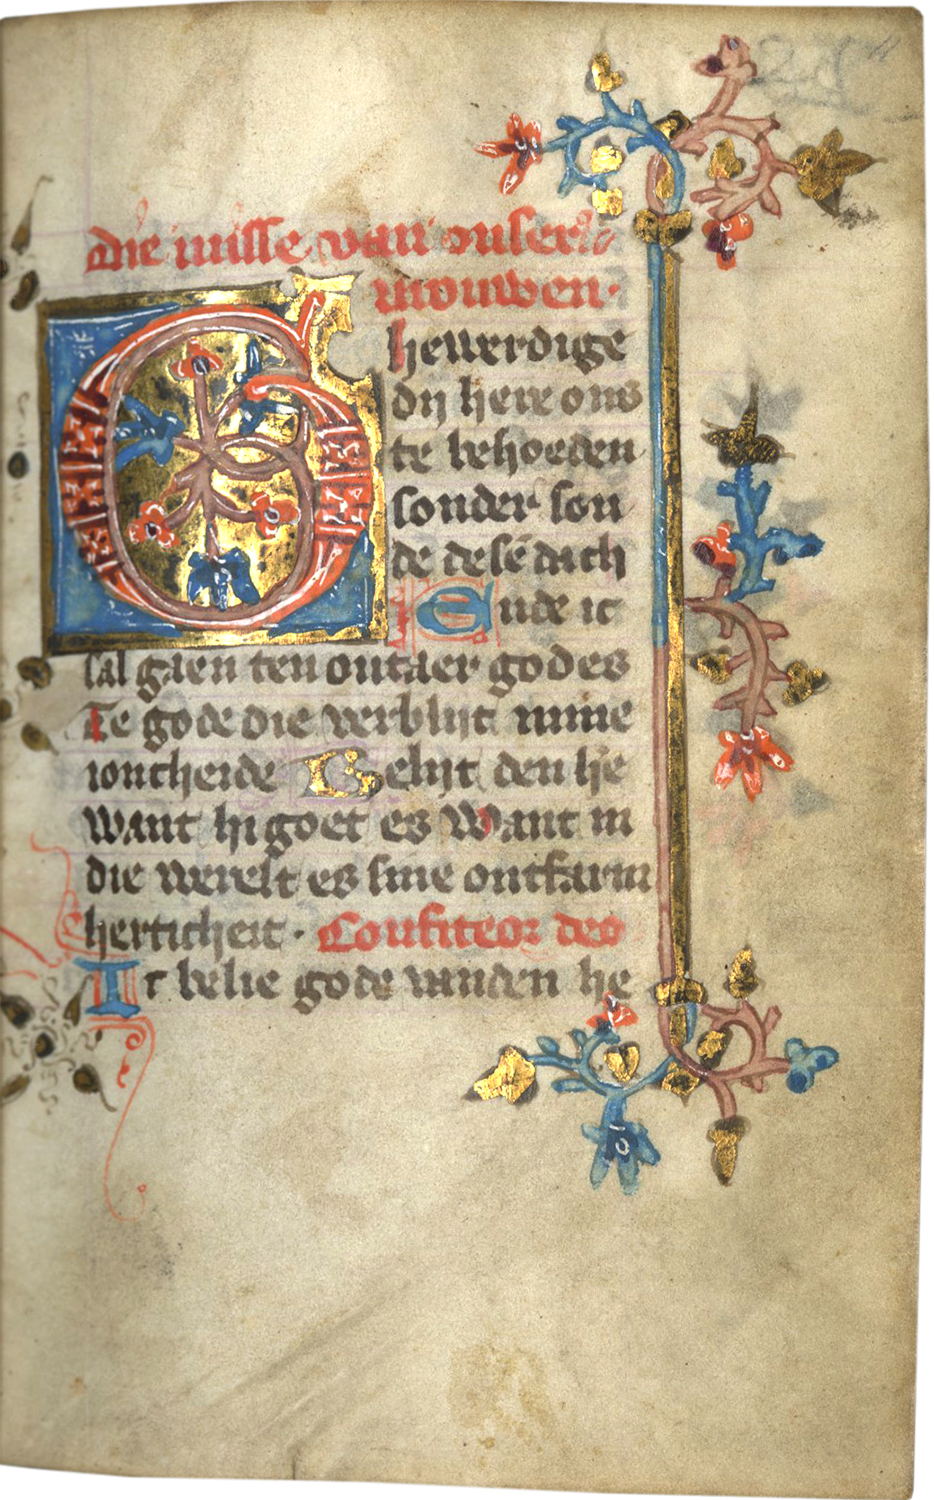 die misse van onser
vrouwen·
Ghewerdige
dij here ons
te behoeden
sonder son
de desē dach
Ende ic
sal gaen ten outaer godes
Te gode die verblijt mine
ioncheide Belijt den he
want hi goet es Want in
die werelt es sine ontfarm
herticheit · Confiteor deo
Ic belie gode vanden he